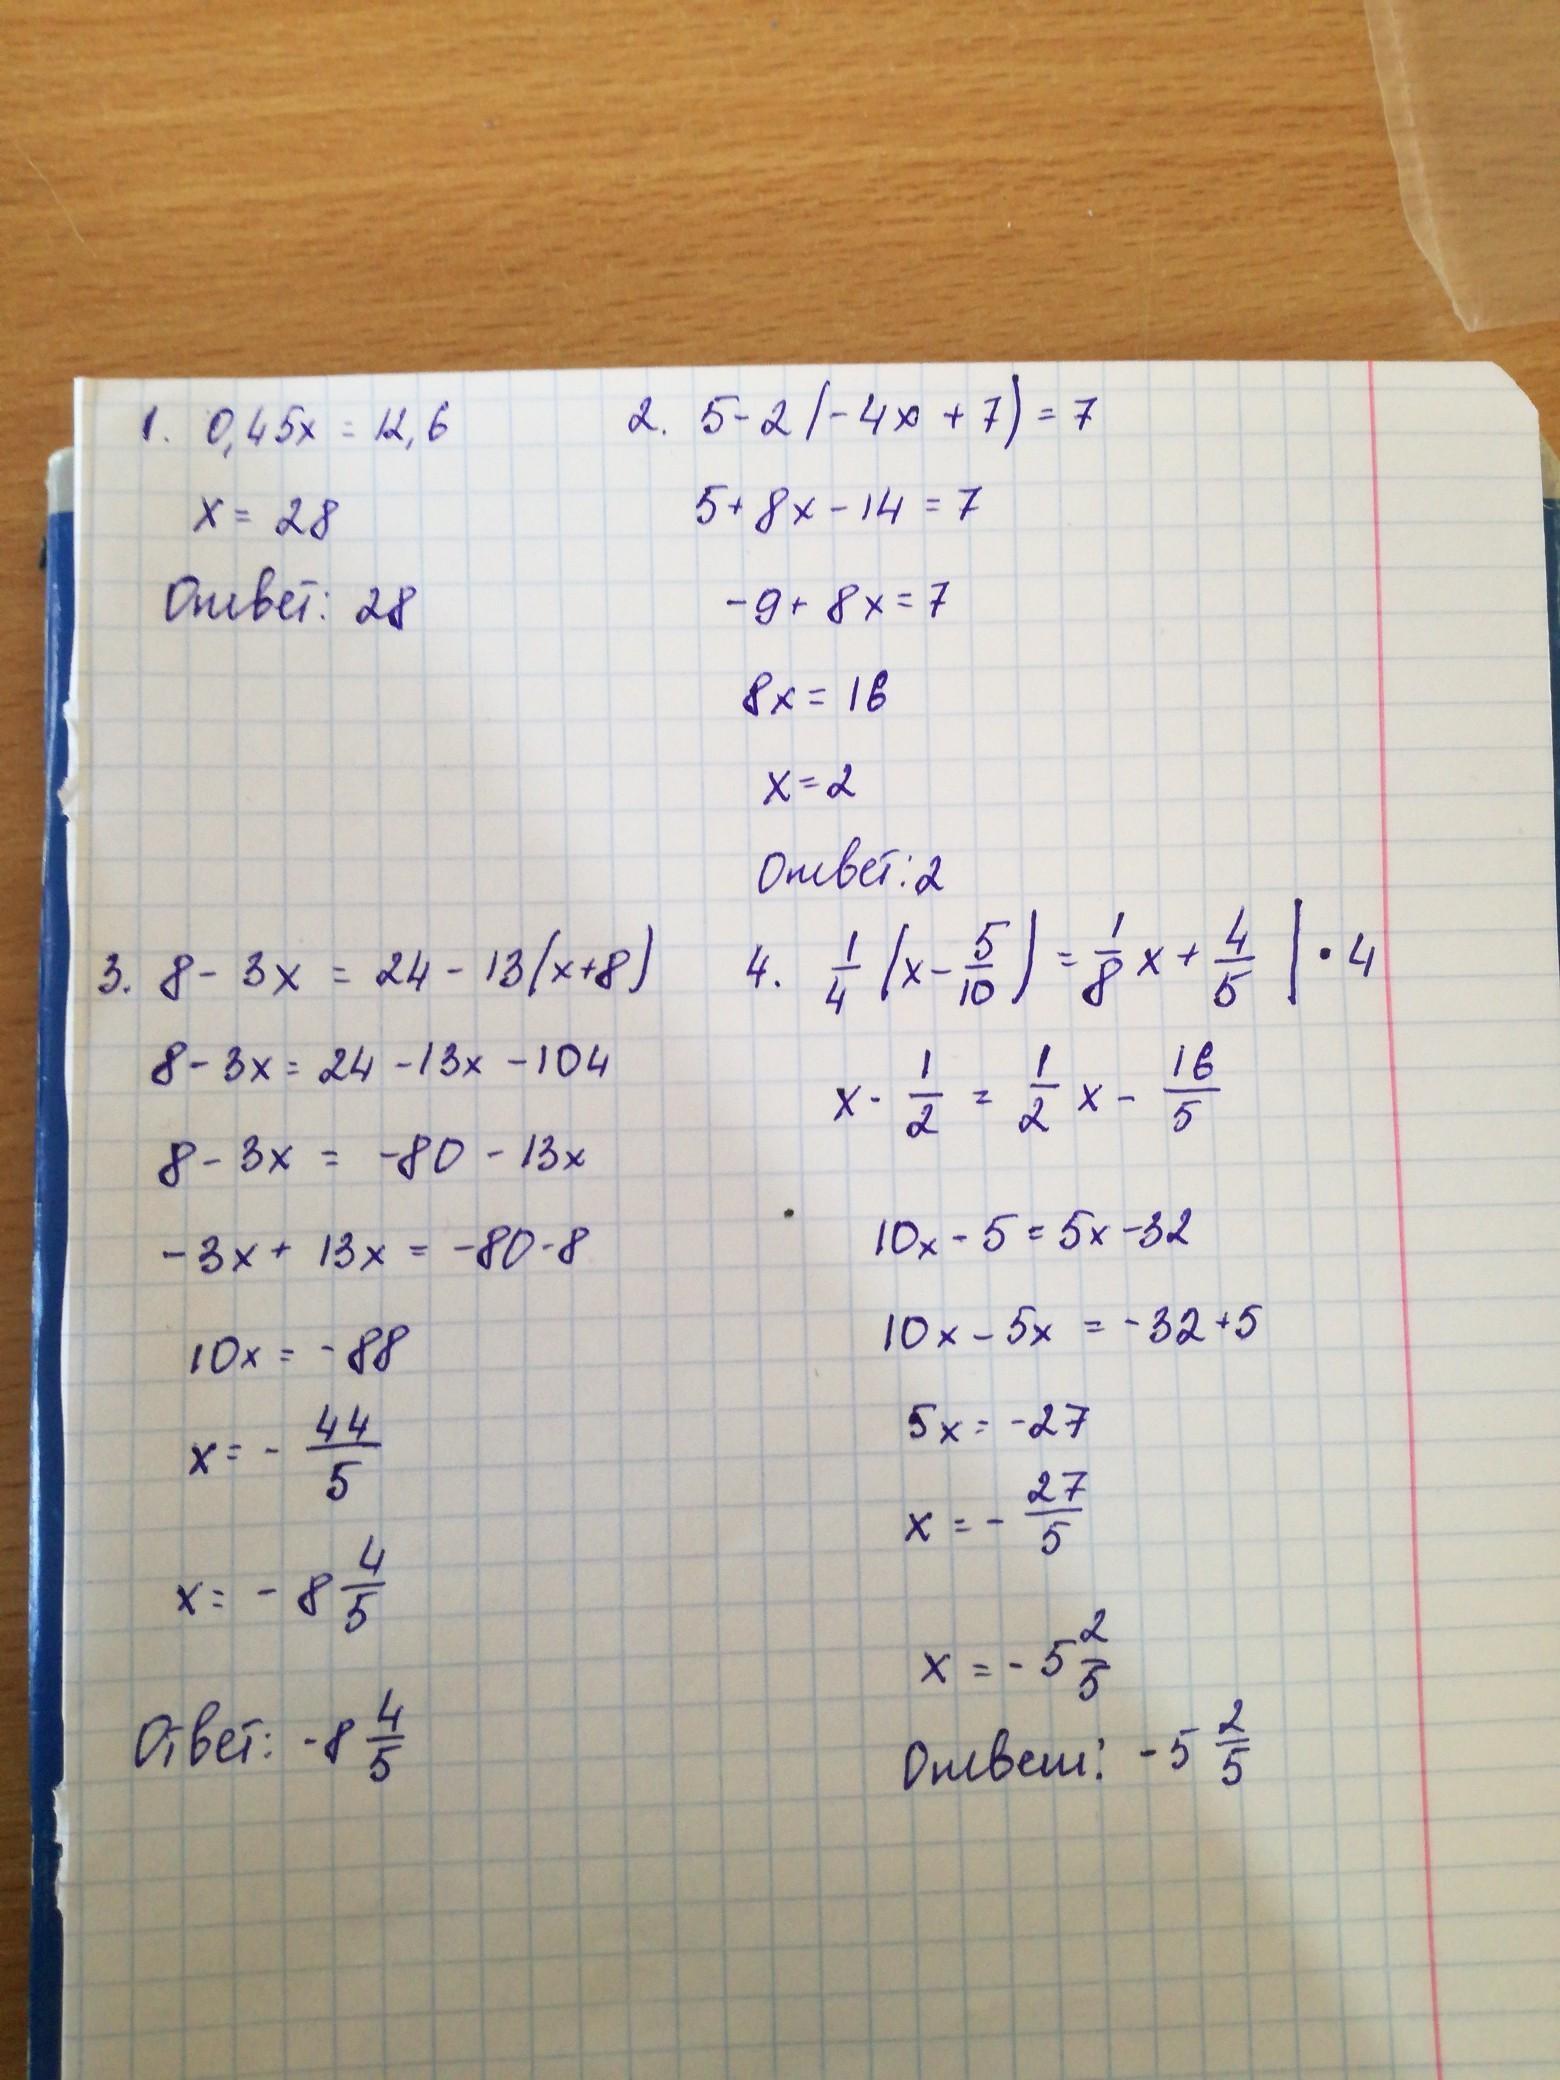 1. 0,45x = 12,6
x = 28
Ответ: 28
2. 5 - 2(-4x + 7) = 7
5 + 8x - 14 = 7
-9 + 8x = 7
8x = 16
x = 2
Ответ: 2
3. 8 - 3x = 24 - 13(x+8)
8 - 3x = 24 - 13x - 104
8 - 3x = -80 - 13x
-3x + 13x = -80 - 8
10x = -88
x = - 44/5
x = - 8 4/5
Ответ: -8 4/5
4. 1/4 (x - 5/10) = 1/8 x + 4/5 | · 4
x - 1/2 = 1/2 x - 16/5
10x - 5 = 5x - 32
10x - 5x = -32 + 5
5x = -27
x = - 27/5
x = - 5 2/5
Ответ: -5 2/5